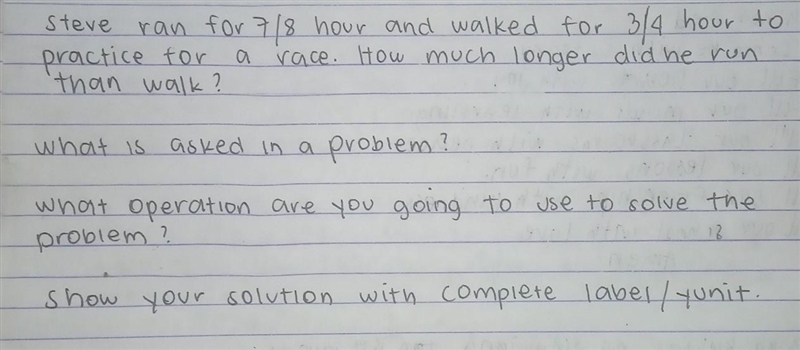 Steve ran for 7/8 hour and walked for 3/4 hour to
practice for a race. How much longer did he run
than walk?
What is asked in a problem?
What operation are you going to use to solve the
problem?
Show your solution with complete label/yunit.